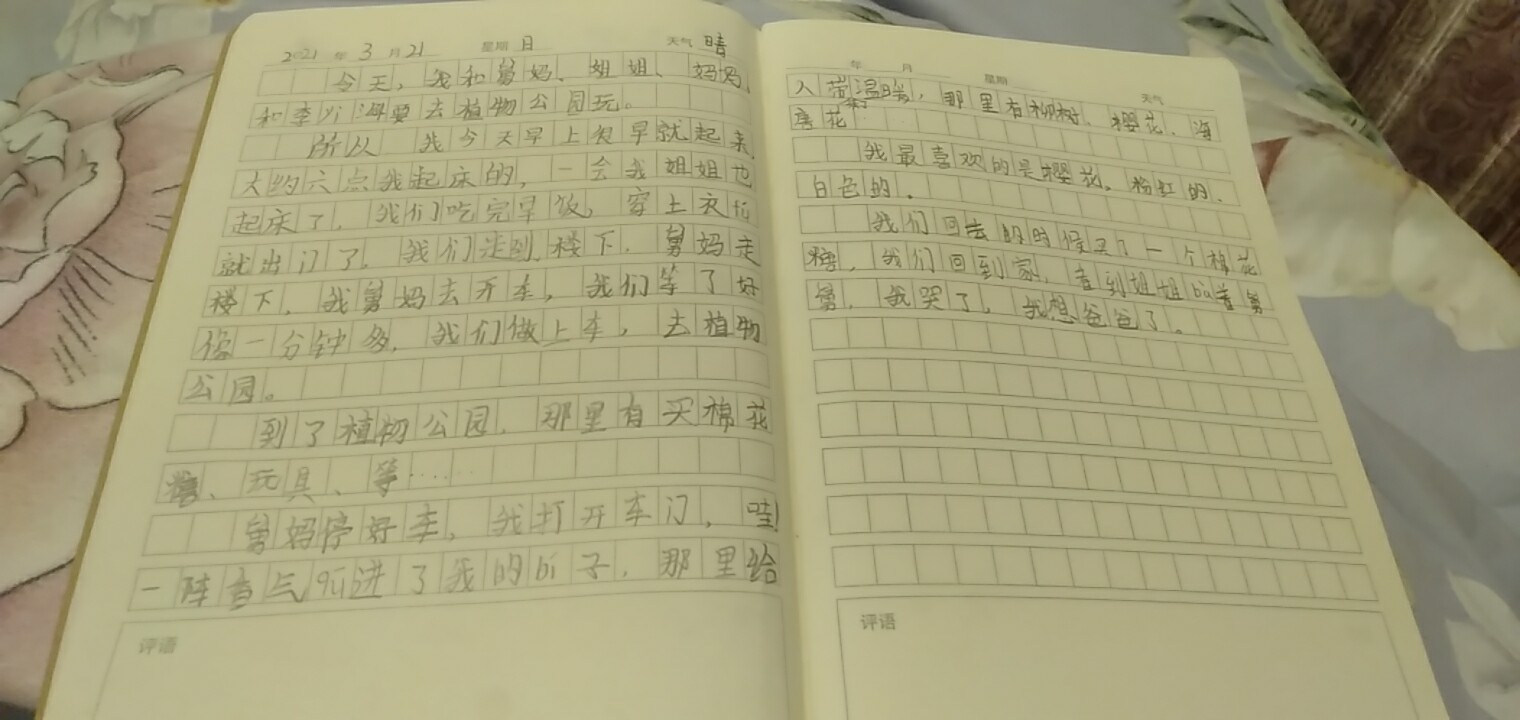 2021 年 3 月 21 星期 日 天气 晴
今天，我和舅妈、姐姐、妈妈、
和李yi海要去植物公园玩。
所以 我今天早上很早就起来
大约六点我起床的，一会我姐姐也
起床了，我们吃完早饭。穿上衣
就出门了，我们走到楼下．舅妈走
楼下，我舅妈去开车，我们等了好
像一分钟多，我们做上车，去植物
公园。
到了植物公园，那里有买棉花
糖、玩具、等……
舅妈停好车，我打开车门，哇!
一阵香气 进了我的bi子．那里给
评语
年 月 星期 天气
人带温暖，那里有柳树、樱花、海
唐花
我最喜欢的是樱花，粉红的、
白色的．
我们回去的时候买了一个棉花
糖，我们回到家，看到姐姐 着舅
舅，我哭了，我想爸爸了。
评语